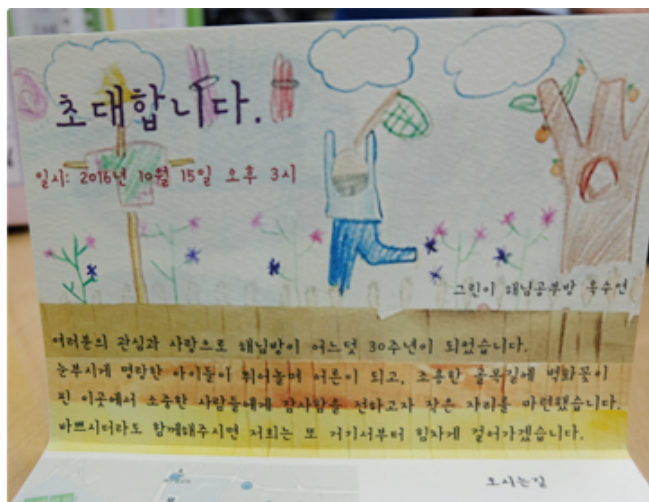 초대합니다.
일시: 2016년 10월 15일 오후 3시
그린이 해님공부방 옥수연
여러분의 관심과 사랑으로 해님방이 어느덧 30주년이 되었습니다.
눈부시게 명랑한 아이들이 뛰어놀며 어른이 되고, 조용한 골목길에 벽화꽃이
핀 이곳에서 소중한 사람들에게 감사함을 전하고자 작은 자리를 마련했습니다.
바쁘시더라도 함께해주시면 저희는 또 거기서부터 힘차게 걸어가겠습니다.
오시는길